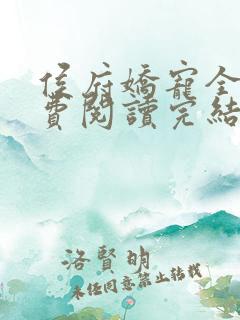 侯府嬌寵全
費閱讀完結
洛賢明
未经同意禁止转载